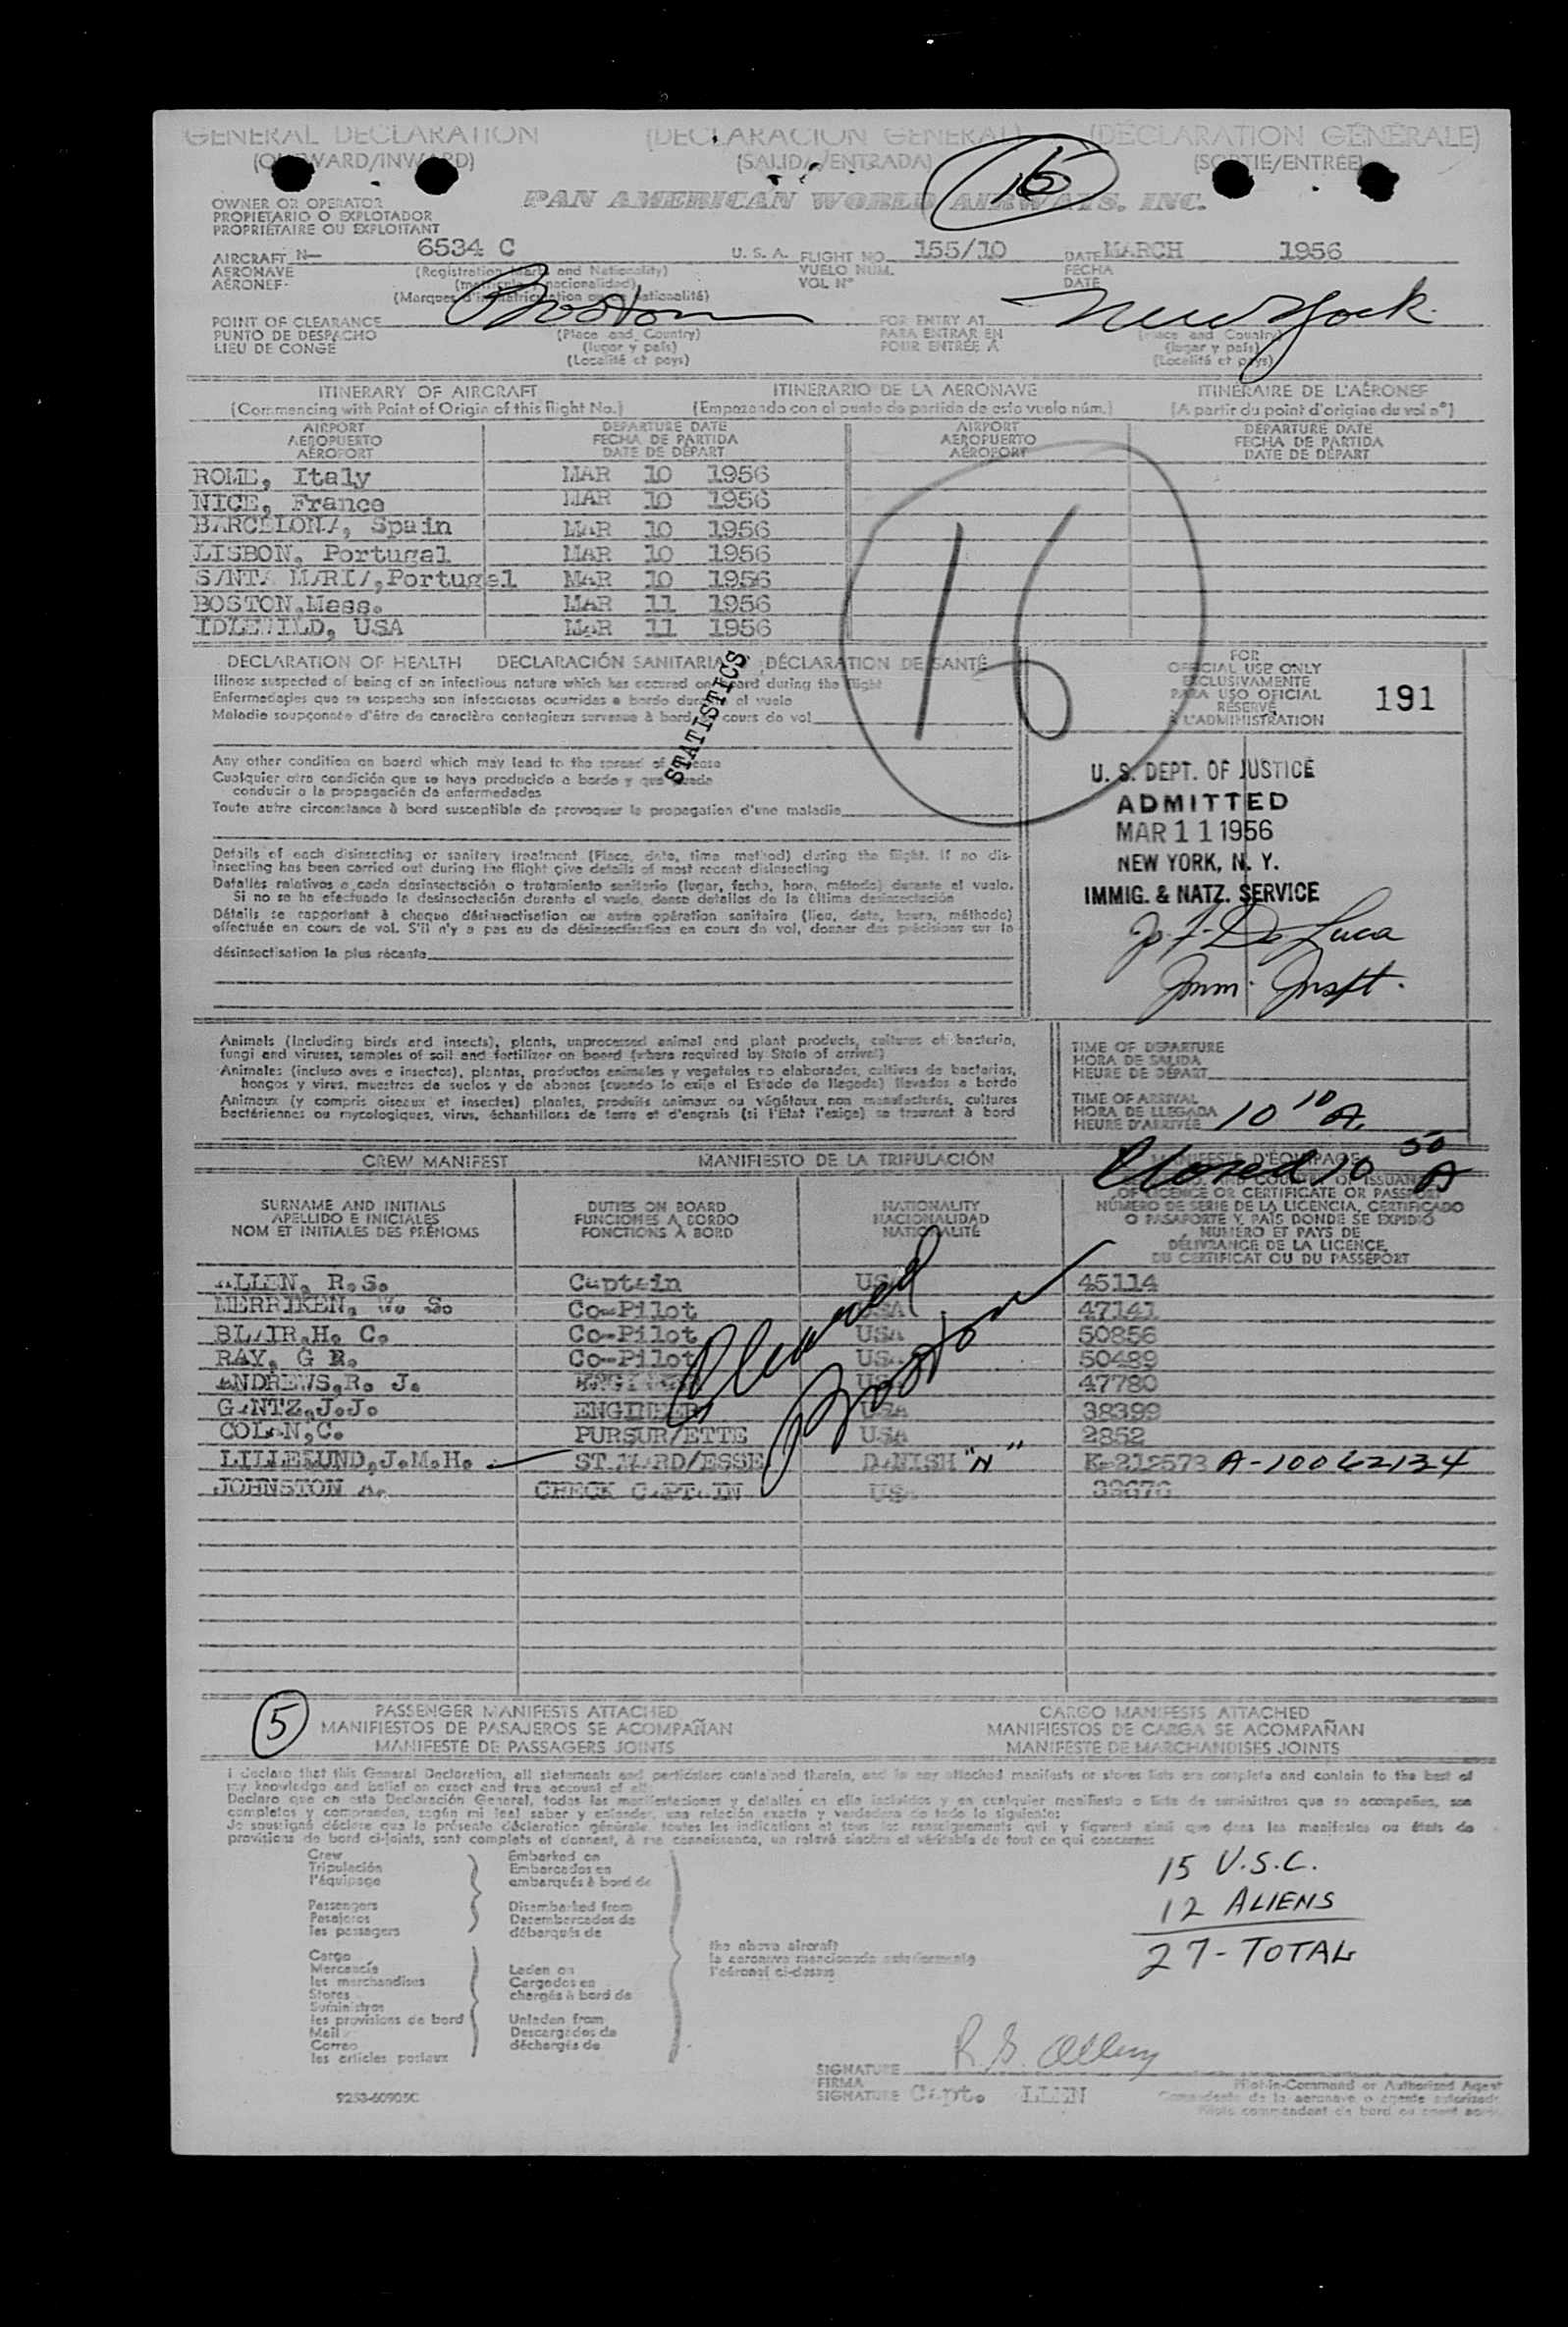 GENERAL DECLARATION (DECLARACIÓN GENERAL) (DÉCLARATION GÉNÉRALE)
(OUTWARD/INWARD) (SALIDA/ENTRADA) (SORTIE/ENTRÉE)
15
OWNER OR OPERATOR
PROPIETARIO O EXPLOTADOR
PROPRIÉTAIRE OU EXPLOITANT
PAN AMERICAN WORLD AIRWAYS, INC.
AIRCRAFT N- 6534 C U. S. A. FLIGHT NO. 155/10 DATE MARCH 1956
AERONAVE (Registration Mark and Nationality) VUELO NUM. FECHA
AÉRONEF (matrícula y nacionalidad) VOL N° DATE
(Marques d'immatriculation ou de nationalité)
POINT OF CLEARANCE Boston FOR ENTRY AT New York
PUNTO DE DESPACHO (Place and Country) PARA ENTRAR EN (Place and Country)
LIEU DE CONGÉ (lugar y país) POUR ENTRÉE À (lugar y país)
(Localité et pays) (Localité et pays)
ITINERARY OF AIRCRAFT ITINERARIO DE LA AERONAVE ITINÉRAIRE DE L'AÉRONEF
(Commencing with Point of Origin of this flight No.) (Empezando con el punto de partida de este vuelo núm.) (A partir du point d'origine du vol n°)
AIRPORT DEPARTURE DATE AIRPORT DEPARTURE DATE
AEROPUERTO FECHA DE PARTIDA AEROPUERTO FECHA DE PARTIDA
AÉROPORT DATE DE DÉPART AÉROPORT DATE DE DÉPART
ROME, Italy MAR 10 1956
NICE, France MAR 10 1956
BARCELONA, Spain MAR 10 1956
LISBON, Portugal MAR 10 1956
SANTA MARIA, Portugal MAR 10 1956
BOSTON.Mass. MAR 11 1956
IDLEWILD, USA MAR 11 1956
16
DECLARATION OF HEALTH DECLARACIÓN SANITARIA DÉCLARATION DE SANTÉ
Illness suspected of being of an infectious nature which has occured on board during the flight
Enfermedades que se sospecha son infecciosas ocurridas a bordo durante el vuelo
Maladie soupçonnée d'être de caractère contagieux survenue à bord en cours de vol
STATISTICS
Any other condition on board which may lead to the spread of disease
Cualquier otra condición que se haya producido a bordo y que pueda
conducir a la propagación de enfermedades
Toute autre circonstance à bord susceptible de provoquer la propagation d'une maladie
Details of each disinsecting or sanitary treatment (Place, date, time method) during the flight. If no dis-
insecting has been carried out during the flight give details of most recent disinsecting
Detalles relativos a cada desinsectación o tratamiento sanitario (lugar, fecha, hora, método) durante el vuelo.
Si no se ha efectuado la desinsectación durante el vuelo, dense detalles de la última desinsectación
Détails se rapportant à chaque désinsectisation ou autre opération sanitaire (lieu, date, heure, méthode)
effectuée en cours de vol. S'il n'y a pas eu de désinsectisation en cours de vol, donner des précisions sur la
désinsectisation la plus récente
FOR
OFFICIAL USE ONLY
EXCLUSIVAMENTE
PARA USO OFICIAL
RÉSERVÉ
À L'ADMINISTRATION
191
U. S. DEPT. OF JUSTICE
ADMITTED
MAR 11 1956
NEW YORK, N. Y.
IMMIG. & NATZ. SERVICE
Jo. F. De Luca
Imm. Inspt.
Animals (including birds and insects), plants, unprocessed animal and plant products, cultures of bacteria,
fungi and viruses, samples of soil and fertilizer on board (where required by State of arrival)
Animales (incluso aves e insectos), plantas, productos animales y vegetales no elaborados, cultivos de bacterias,
hongos y virus, muestras de suelos y de abonos (cuando lo exija el Estado de llegada) llevados a bordo
Animaux (y compris oiseaux et insectes) plantes, produits animaux ou végétaux non manufacturés, cultures
bactériennes ou mycologiques, virus, échantillons de terre et d'engrais (si l'Etat l'exige) se trouvant à bord
TIME OF DEPARTURE
HORA DE SALIDA
HEURE DE DÉPART
TIME OF ARRIVAL
HORA DE LLEGADA
HEURE D'ARRIVÉE 10 10 A.
CREW MANIFEST MANIFIESTO DE LA TRIPULACIÓN MANIFESTE D'ÉQUIPAGE
Closed 10 50 A
SURNAME AND INITIALS DUTIES ON BOARD NATIONALITY
APELLIDO E INICIALES FUNCIONES A BORDO NACIONALIDAD
NOM ET INITIALES DES PRÉNOMS FONCTIONS À BORD NATIONALITÉ
AND COUNTRY OF ISSUANCE
OF LICENCE OR CERTIFICATE OR PASSPORT
NÚMERO DE SERIE DE LA LICENCIA, CERTIFICADO
O PASAPORTE Y PAÍS DONDE SE EXPIDIÓ
NUMERO ET PAYS DE
DÉLIVRANCE DE LA LICENCE,
DU CERTIFICAT OU DU PASSEPORT
ALLEN, R.S. Captain USA 45114
MERRIKEN, W. S. Co-Pilot USA 47141
BLAIR.H. C. Co-Pilot USA 50856
RAY, G R. Co-Pilot USA 50489
ANDREWS,R. J. ENGINEER USA 47780
GANTZ,J.J. ENGINEER USA 38399
COLAN,C. PURSUR/ETTE USA 2852
LILLELUND,J.M.H. STEWARD/ESSE DANISH "N" K-212573 A-10062134
JOHNSTON A. CHECK CAPTAIN USA 38670
Cleared
Boston
5
PASSENGER MANIFESTS ATTACHED CARGO MANIFESTS ATTACHED
MANIFIESTOS DE PASAJEROS SE ACOMPAÑAN MANIFIESTOS DE CARGA SE ACOMPAÑAN
MANIFESTE DE PASSAGERS JOINTS MANIFESTE DE MARCHANDISES JOINTS
I declare that this General Declaration, all statements and particulars contained therein, and in any attached manifests or stores lists are complete and contain to the best of
my knowledge and belief an exact and true account of all:
Declaro que en esta Declaración General, todas las manifestaciones y detalles en ella incluidos y en cualquier manifiesto o lista de suministros que se acompañan, son
completos y comprenden, según mi leal saber y entender, una relación exacta y verdadera de todo lo siguiente:
Je soussigné déclare que la présente déclaration générale, toutes les indications et tous les renseignements qui y figurent ainsi que dans les manifestes ou états de
provisions de bord ci-joints, sont complets et donnent, à ma connaissance, un relevé sincère et véritable de tout ce qui concerne:
Crew Embarked on
Tripulación Embarcados en
l'équipage embarqués à bord de
Passengers Disembarked from
Pasajeros Desembarcados de
les passagers débarqués de
Cargo
Mercancía Laden on
les marchandises Cargados en
Stores chargés à bord de
Suministros
les provisions de bord Unladen from
Mail Descargados de
Correo déchargés de
les articles postaux
the above aircraft
la aeronave mencionada anteriormente
l'aéronef ci-dessus
15 U.S.C.
12 ALIENS
27-TOTAL
SIGNATURE R.S. Allen
FIRMA
SIGNATURE Capt. LLEN
Pilot-in-Command or Authorized Agent
Comandante de la aeronave o agente autorizado
Pilote commandant de bord ou agent
9253-60905C